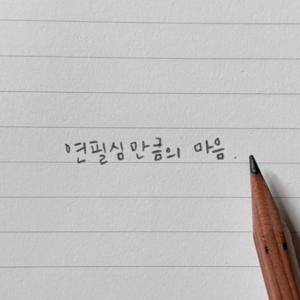 연필심만큼의 마음.